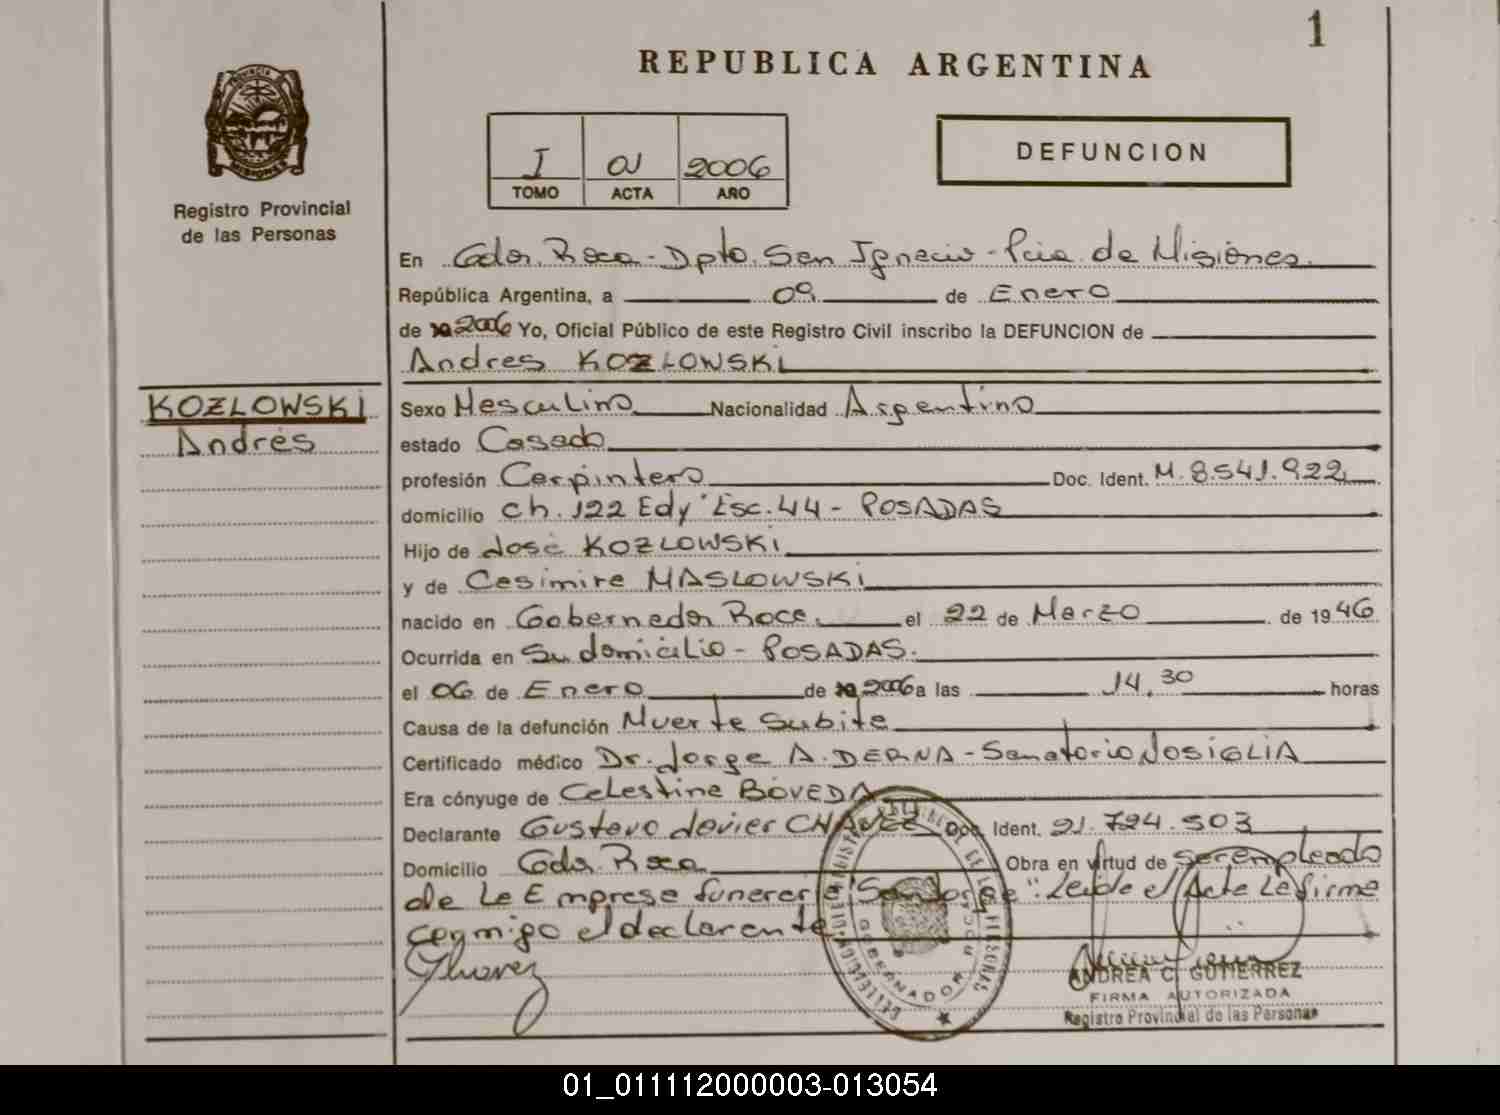 1
REPUBLICA ARGENTINA
PROVINCIA
MISIONES
Registro Provincial
de las Personas
I 01 2006
TOMO ACTA AÑO
DEFUNCION
En Gdor. Roca - Dpto. San Ignacio - Pcia. de Misiones.
República Argentina, a 09 de Enero
de 2006 Yo, Oficial Público de este Registro Civil inscribo la DEFUNCION de
Andres KOZLOWSKI
KOZLOWSKI
Andrés
Sexo Masculino Nacionalidad Argentino
estado Casado
profesión Carpintero Doc. Ident. M. 8.541.922
domicilio Ch. 122 Edy Esc. 44 - POSADAS
Hijo de José KOZLOWSKI
y de Casimira MASLOWSKI
nacido en Gobernador Roca. el 22 de Marzo de 1946
Ocurrida en Su domicilio - POSADAS.
el 06 de Enero de 2006 a las 14.30 horas
Causa de la defunción Muerte Subita
Certificado médico Dr. Jorge A. DERNA - Sanatorio NOSIGLIA
Era cónyuge de Celestina BOVEDA
Declarante Gustavo Javier CHAVEZ Doc. Ident. 21.724.503
Domicilio Gdor. Roca Obra en virtud de ser empleado
de la Empresa funeraria "San Jorge". Leída el Acta la firma
conmigo el declarante
Chavez
GOBERNADOR ROCA
ANDREA C. GUTIERREZ
FIRMA AUTORIZADA
Registro Provincial de las Personas
01_011112000003-013054